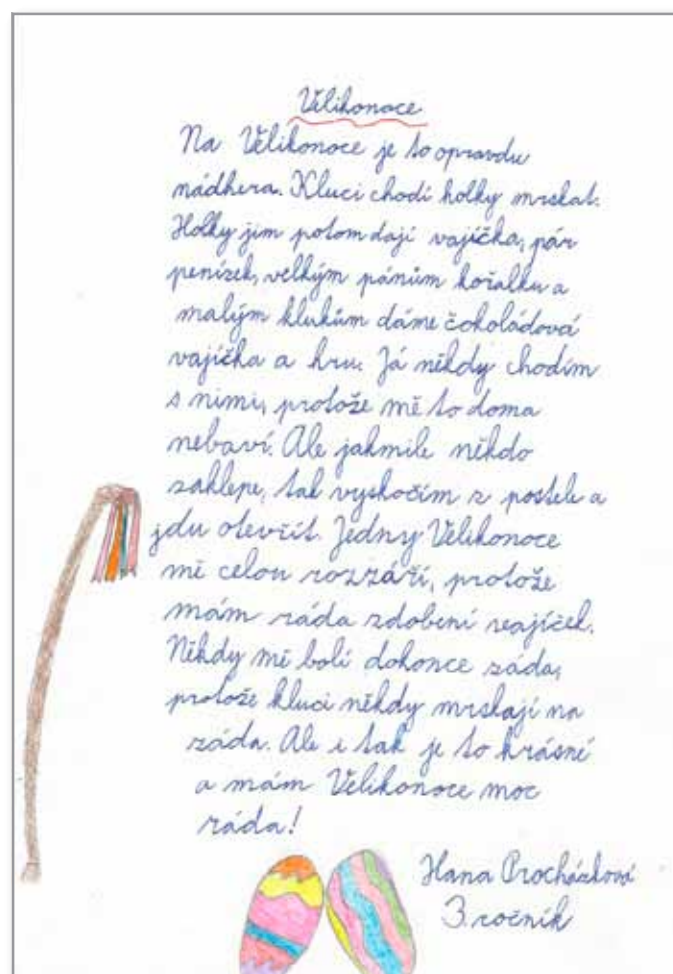 Velikonoce
Na Velikonoce je to opravdu
nádhera. Kluci chodí holky mrskat.
Holky jim potom dají vajíčka, pár
penízek, velkým pánům kořalku a
malým klukům dáme čokoládová
vajíčka a hru. Já někdy chodím
s nimi, protože mě to doma
nebaví. Ale jakmile někdo
zaklepe, tak vyskočím z postele a
jdu otevřít. Jedny Velikonoce
mě celou rozzáří, protože
mám ráda zdobení vajíček.
Někdy mě bolí dokonce záda,
protože kluci někdy mrskají na
záda. Ale i tak je to krásné
a mám Velikonoce moc
ráda!
Hana Procházková
3. ročník